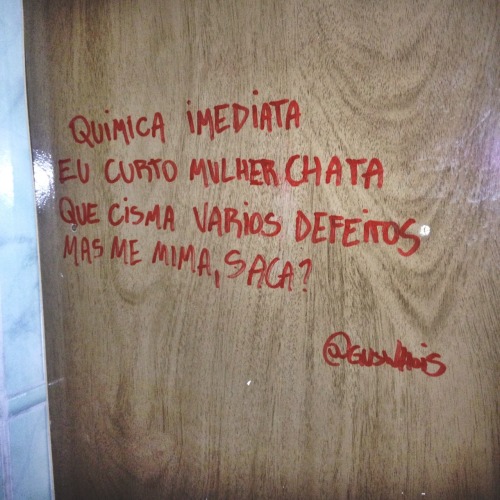 QUIMICA IMEDIATA
EU CURTO MULHER CHATA
QUE CISMA VARIOS DEFEITOS
MAS ME MIMA, SACA?